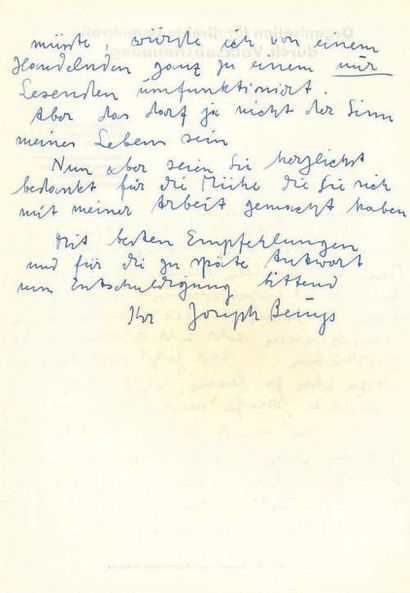 müsste, würde ich von einem
Handelnden ganz zu einem nur
Lesenden umfunktioniert.
Aber das darf ja nicht der Sinn
meines Lebens sein
Nun aber seien Sie herzlichst
bedankt für die Mühe die Sie sich
mit meiner Arbeit gemacht haben
Mit besten Empfehlungen
und für die zu späte Antwort
um Entschuldigung bittend
Ihr Joseph Beuys